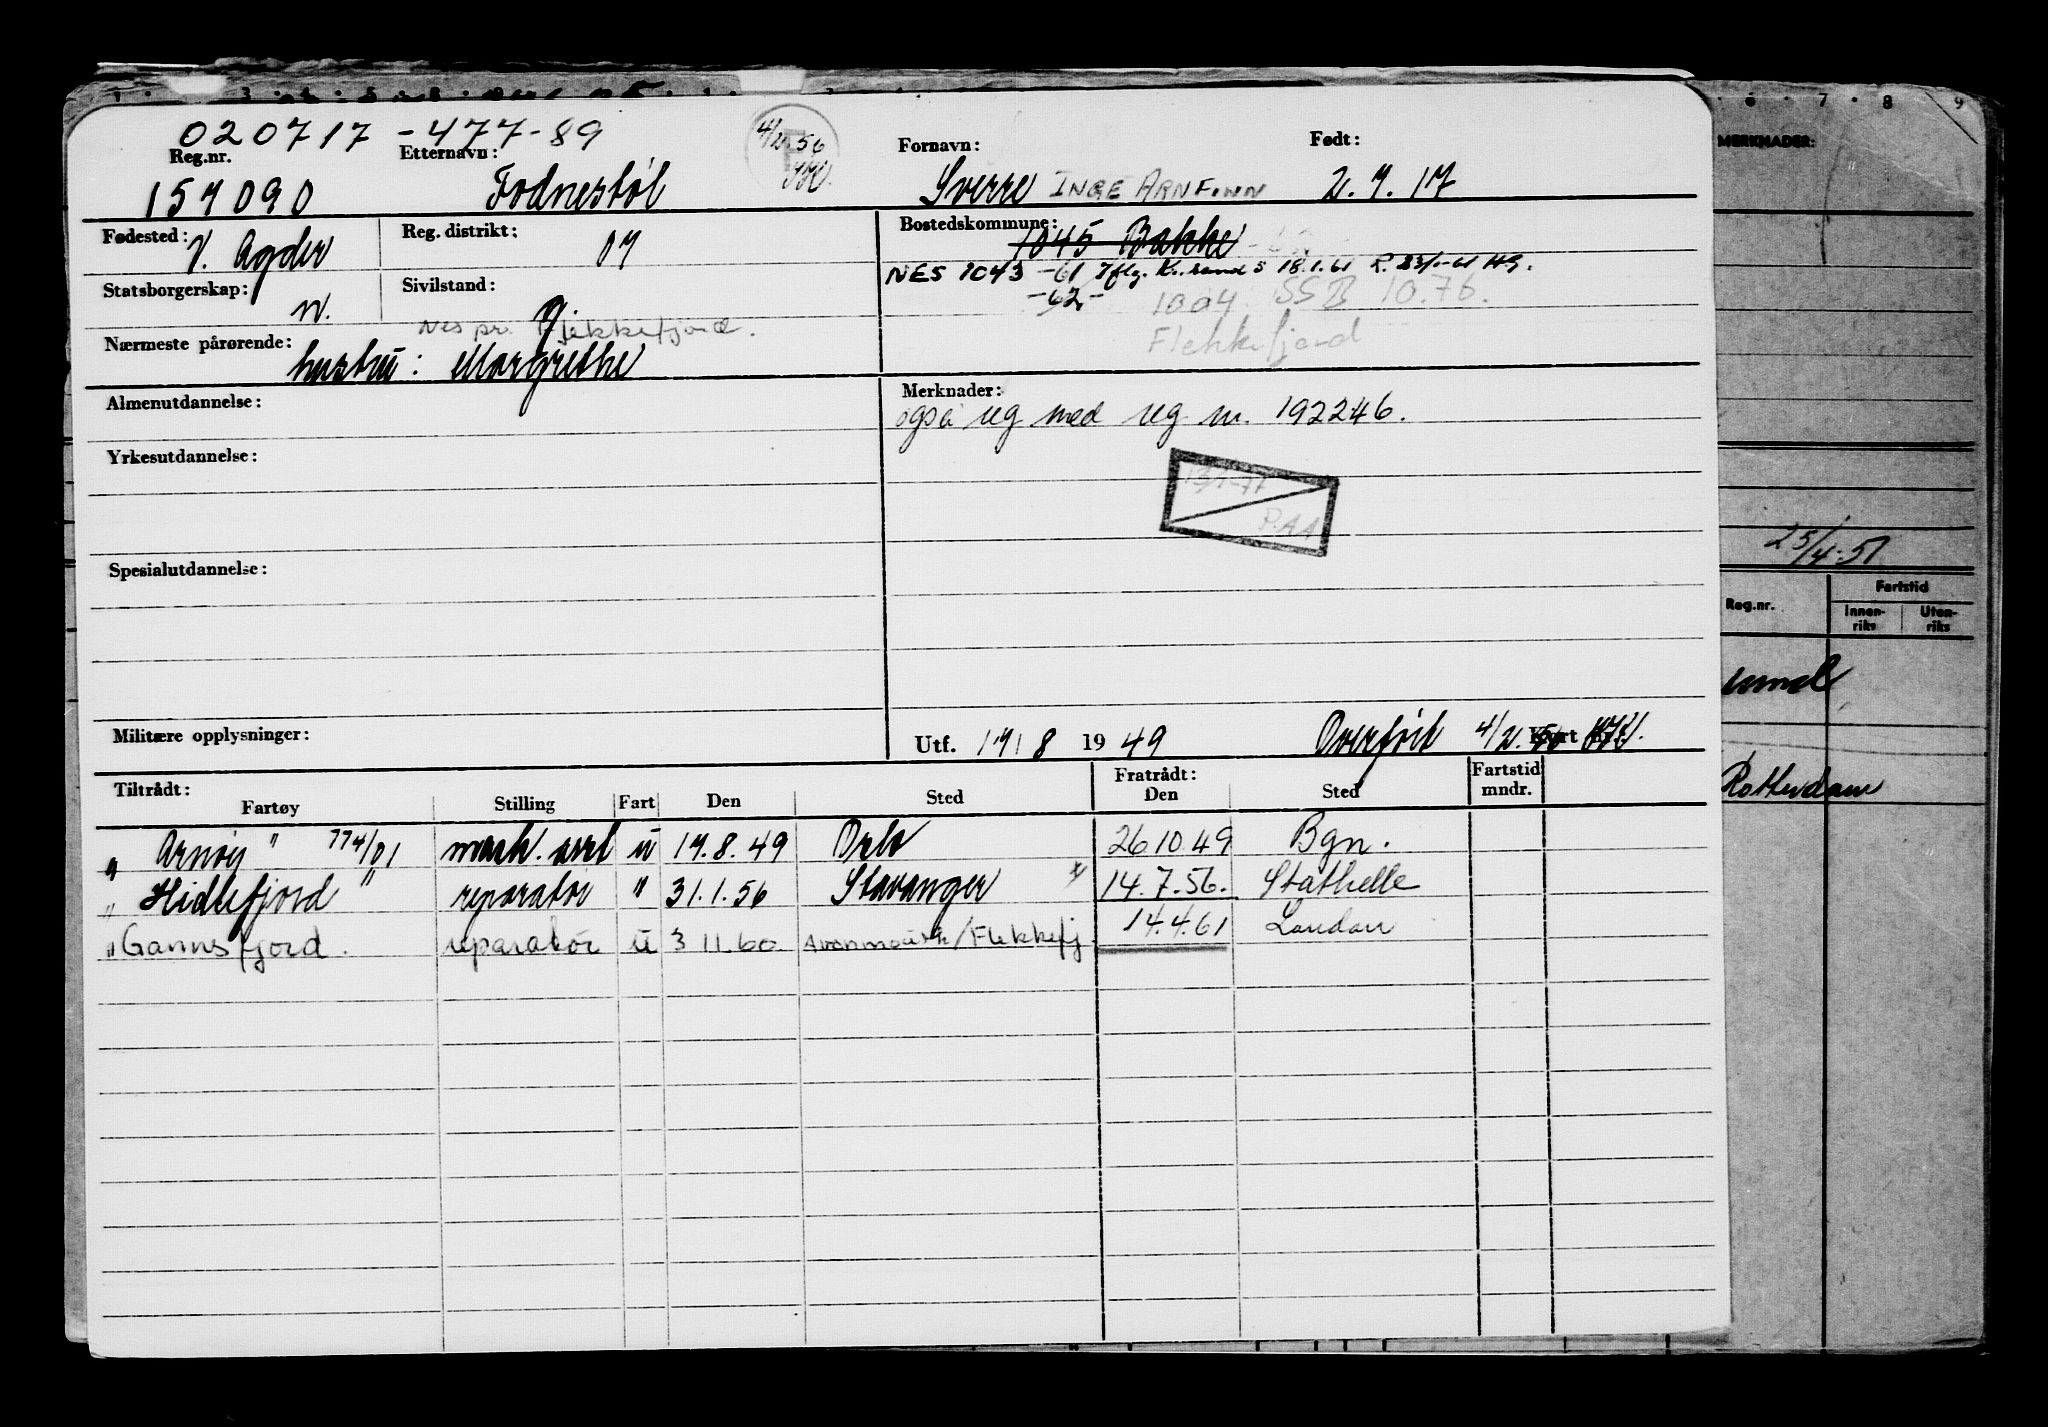 020717-477-89
Reg.nr. Etternavn: Fornavn: Født:
4/2 56
159090 Fodnestøl Sverre INGE ARNFINN 2.7.17
Fødested: V. Agder Reg. distrikt: 07 Bostedskommune: 1045 Bakke
NES 1043 -61 Iflg. Kr.sand S 18.1.61
-62-
Statsborgerskap: n. Sivilstand: g.
1004 SSB 10.76.
Flekkefjord
Nes pr. Flekkefjord.
Nærmeste pårørende: hustru: Margrethe
Almenutdannelse: Merknader:
også reg med reg nr. 192246.
Yrkesutdannelse:
13/1-77
P.AA
Spesialutdannelse:
Militære opplysninger: Utf. 17/8 1949 Overført 4/2.56
Tiltrådt: Fratrådt: Fartstid mndr.
Fartøy Stilling Fart Den Sted Den Sted
"Arnøy" 774/01 mask. asst u 17.8.49 Oslo 26.10.49 Bgn.
"Hidlefjord" reparatør " 31.1.56 Stavanger 14.7.56. Stathelle
"Gannsfjord. reparatør u 3 11.60. Avonmouth/Flekkefj 14.4.61 London
6 7 8 9
MERKNADER:
25/4-51
Reg.nr. Fartstid
Innen-riks Uten-riks
Rotterdam